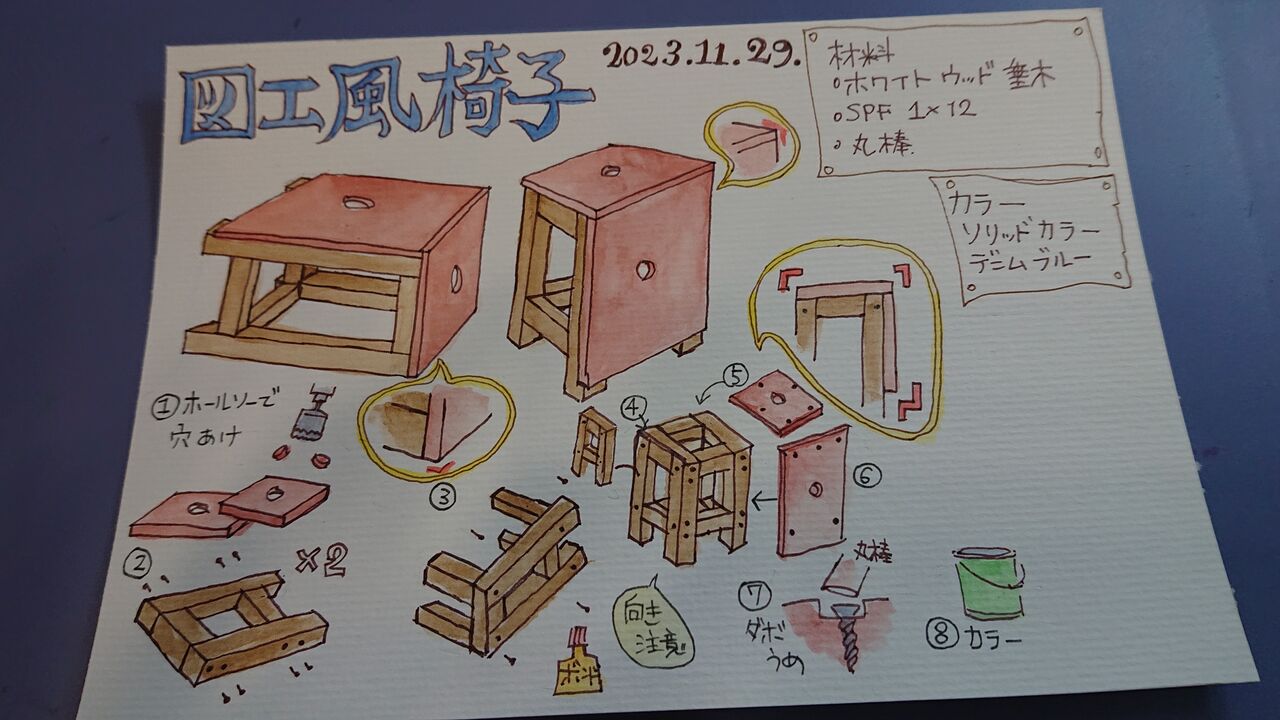 図工風椅子
2023.11.29.
材料
○ホワイトウッド 垂木
○SPF 1×12
○丸棒
カラー
ソリッドカラー
デニムブルー
①ホールソーで
穴あけ
②
×2
③
④
⑤
⑥
ボンド
向き
注意
⑦
ダボ
うめ
丸棒
⑧カラー